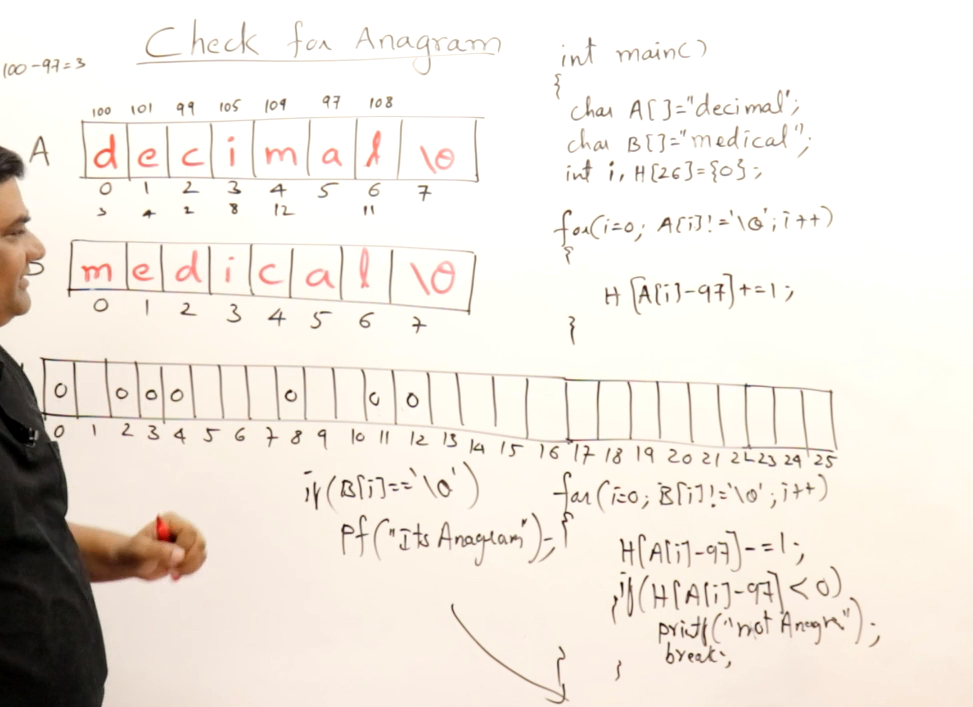 Check for Anagram
100-97=3
100 101 99 105 109 97 108
A d e c i m a l \0
0 1 2 3 4 5 6 7
3 4 2 8 12 11
B m e d i c a l \0
0 1 2 3 4 5 6 7
0 0 0 0 0 0 0
0 1 2 3 4 5 6 7 8 9 10 11 12 13 14 15 16 17 18 19 20 21 22 23 24 25
if(B[i]=='\0')
Pf("Its Anagram");
int main()
{
char A[]="decimal";
char B[]="medical";
int i, H[26]={0};
for(i=0; A[i]!='\0'; i++)
{
H[A[i]-97]+=1;
}
for(i=0; B[i]!='\0'; i++)
{
H[A[i]-97]-=1;
if(H[A[i]-97]<0)
{
printf("not Anagra");
break;
}
}